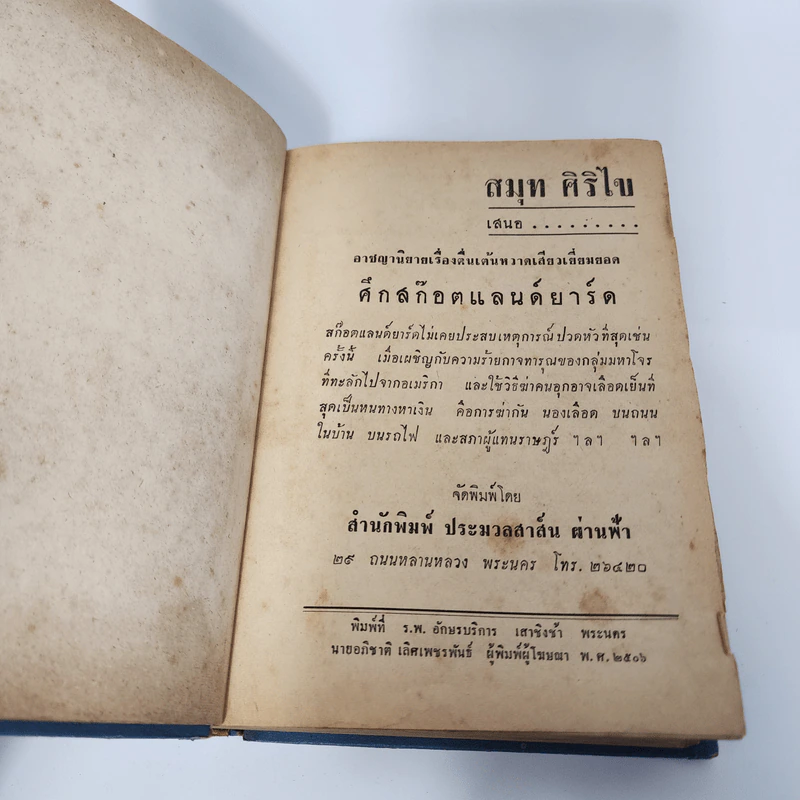 สมุท ศิริไข
เสนอ . . . . . . . . .
อาชญานิยายเรื่องตื่นเต้นหวาดเสียวเยี่ยมยอด
ศึกสก๊อตแลนด์ยาร์ด
สก๊อตแลนด์ยาร์ดไม่เคยประสบเหตุการณ์ปวดหัวที่สุดเช่น
ครั้งนี้ เมื่อเผชิญกับความร้ายกาจทารุณของกลุ่มมหาโจร
ที่ทะลักไปจากอเมริกา และใช้วิธีฆ่าคนอุกอาจเลือดเย็นที่
สุดเป็นหนทางหาเงิน คือการฆ่ากัน นองเลือด บนถนน
ในบ้าน บนรถไฟ และสภาผู้แทนราษฎร์ ฯลฯ ฯลฯ
จัดพิมพ์โดย
สำนักพิมพ์ ประมวลสาส์น ผ่านฟ้า
๒๙ ถนนหลานหลวง พระนคร โทร. ๒๖๔๒๐
พิมพ์ที่ ร.พ. อักษรบริการ เสาชิงช้า พระนคร
นายอภิชาติ เลิศเพชรพันธ์ ผู้พิมพ์ผู้โฆษณา พ.ศ. ๒๕๐๖